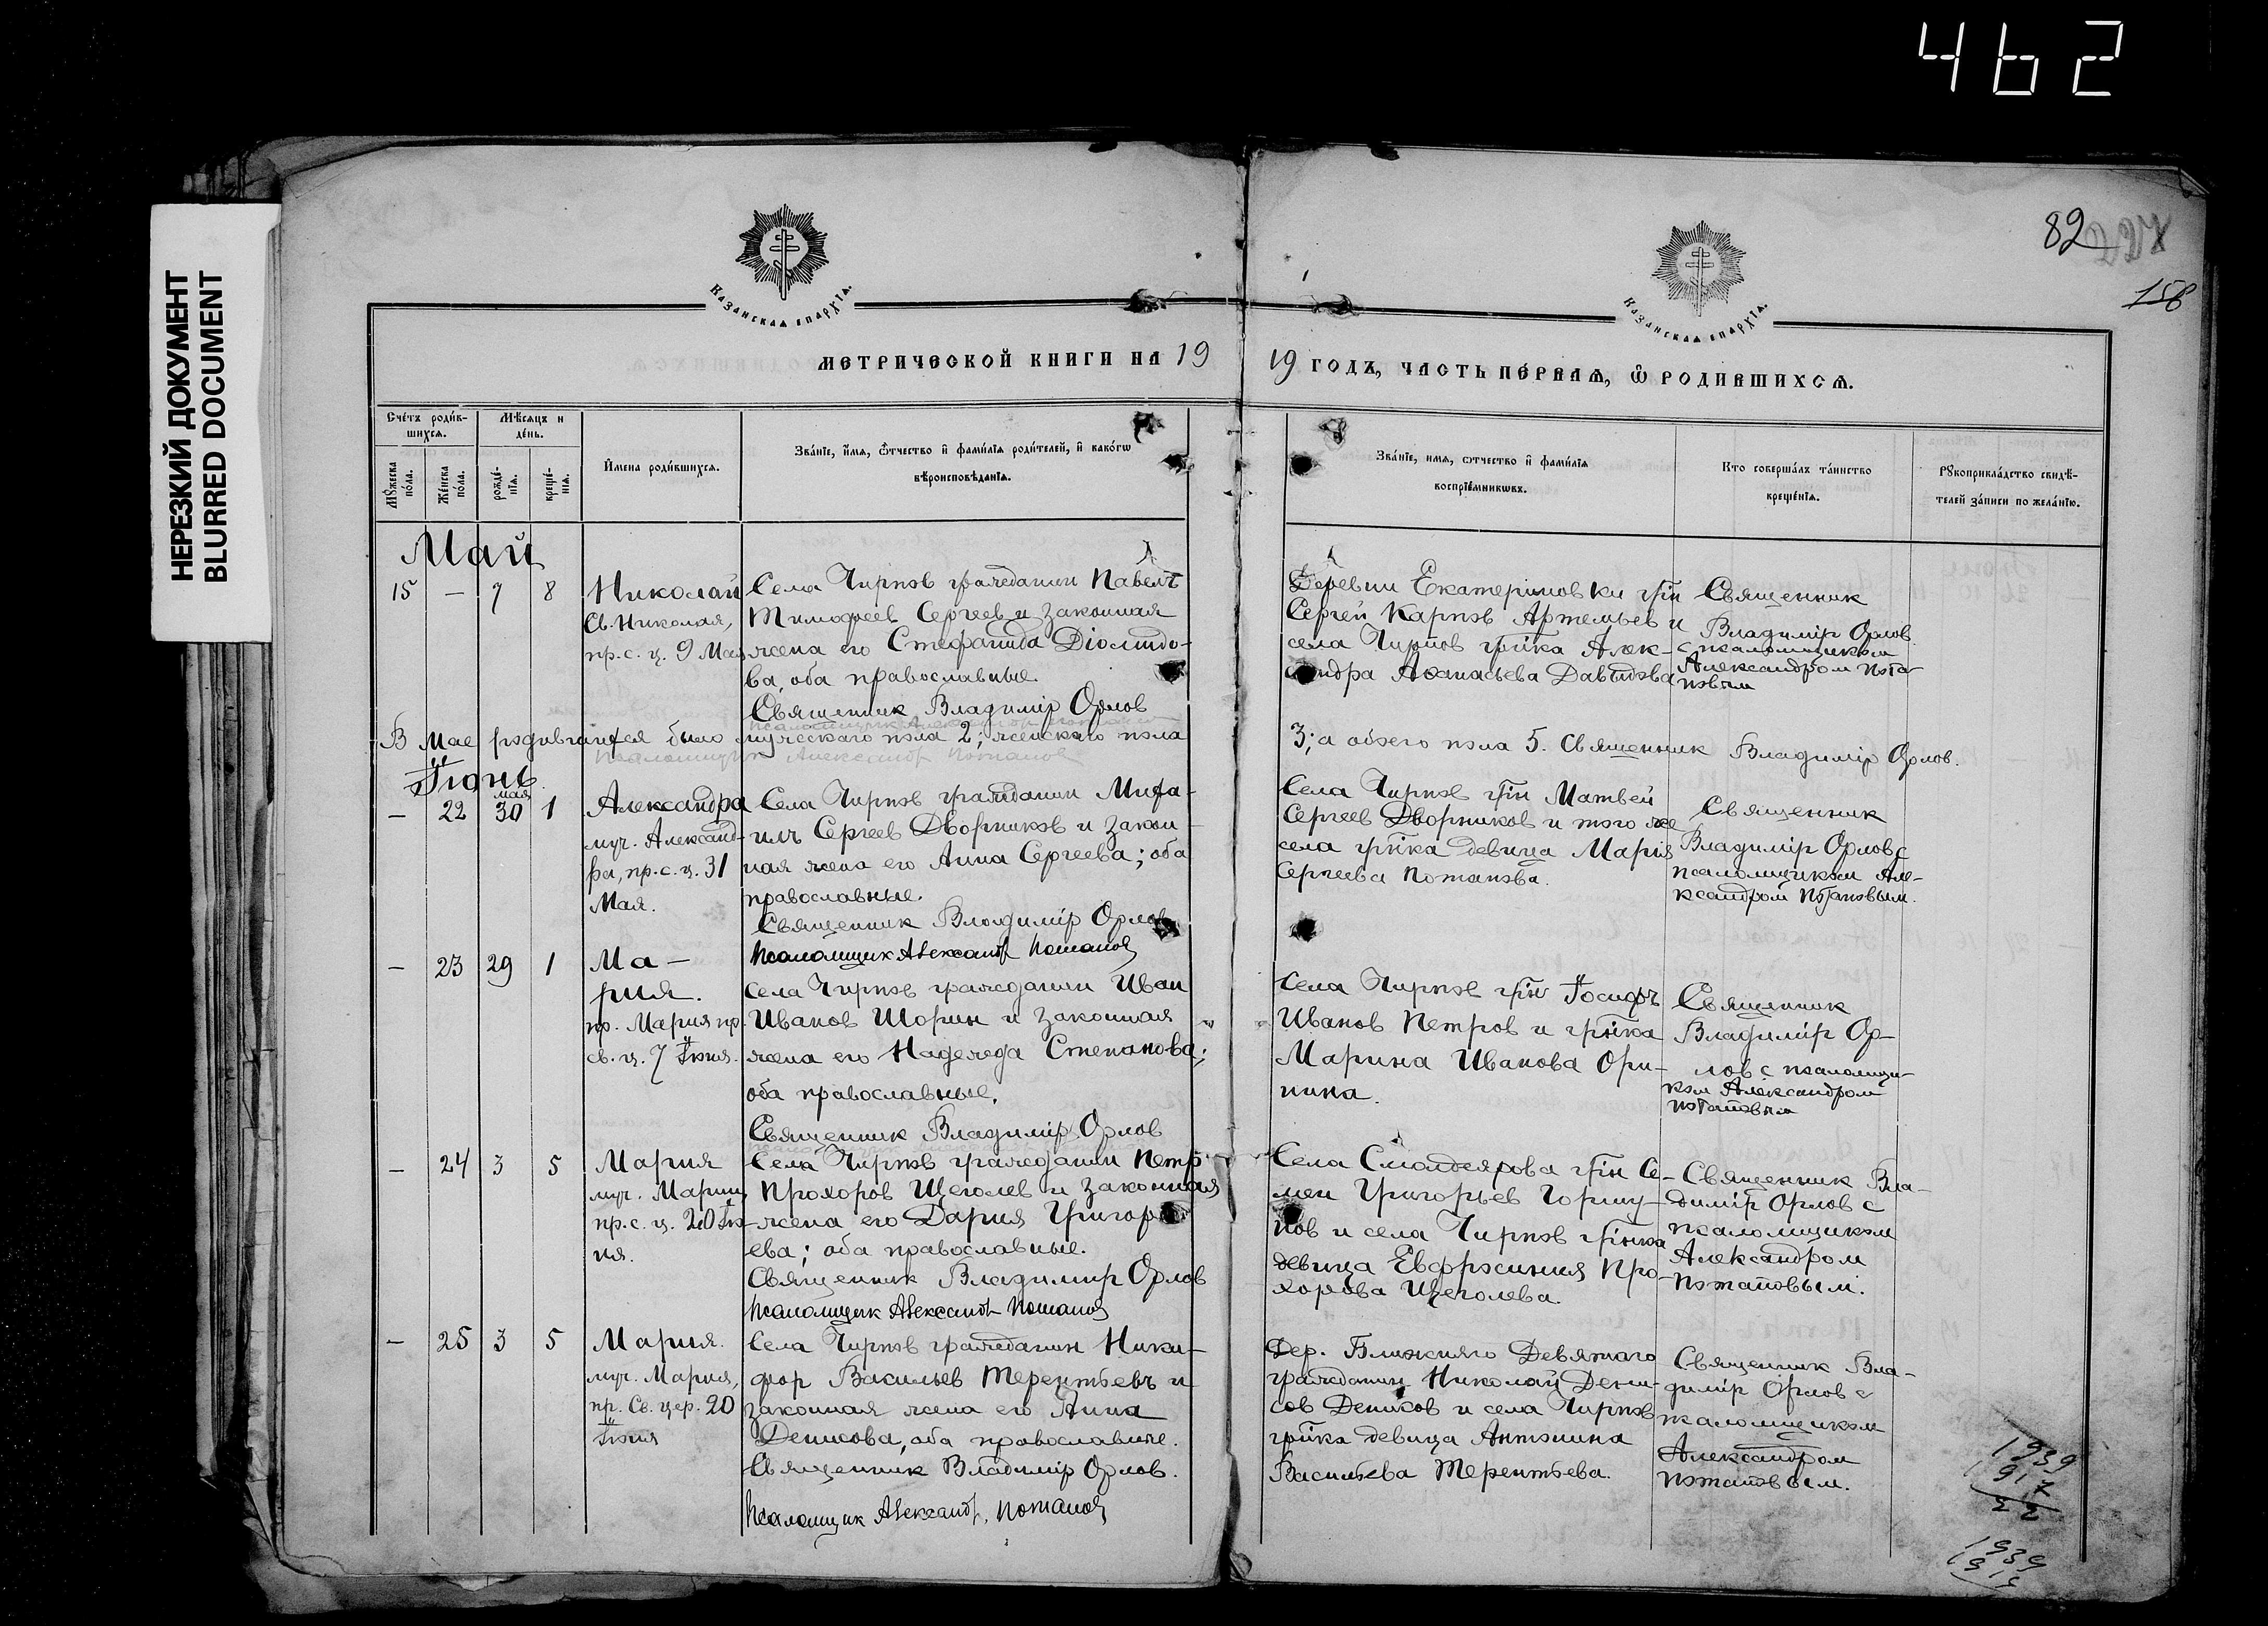 462
НЕРЕЗКИЙ ДОКУМЕНТ
BLURRED DOCUMENT
82
158
Казанская епархїя.
Казанская епархїя.
МЕТРИЧЕСКОЙ КНИГИ НА 19
19 ГОДЪ, ЧАСТЬ ПЕРВАѦ, Ѽ РОДИВШИХСѦ.
Счéтъ роди́в-
шихсѧ.
Мѣ́сѧцъ и
де́нь.
Мꙋжеска
по́ла.
Же́нска
по́ла.
рожде́-
нїѧ.
креще́-
нїѧ.
И́мена роди́вшихсѧ.
Зва́нїе, и́мѧ, ѻ҆́тчество и҆ фами́лїѧ роди́телей, и҆ како́гѡ
вѣроисповѣ́данїѧ.
Зва́нїе, имѧ, ѻтчество и҆ фами́лїѧ
воспрїе́мникѡвъ.
Кто соверша́лъ та́инство
креще́нїѧ.
Рꙋкоприкла́дство свидѣ́-
телей за́писи по жела́нїю.
Май
15 — 7 8
Николай
Св. Николая,
пр. с. ц. 9 Мая
Села Чирпов гражданин Павелъ
Тимофеев Сергеев и законная
жена его Стефанида Діомидо-
ва, оба православные.
Священник Владимір Орлов
Деревни Екатериновки гр҃н
Сергей Карпов Артемьев и
села Чирпов гр҃нка Алек-
сандра Афанасьева Давыдова
Священник
Владимір Орлов
с псаломщиком
Александром Пота-
повым
В Мае родившихся было мужескаго пола 2; женскаго пола
3; а обоего пола 5. Священник Владимір Орлов.
Псаломщик Александр Потапов
Іюнь
— 22 мая 30 1
Александра
муч. Александ-
ры, пр. с. ц. 31
Мая.
Села Чирпов гражданин Миха-
илъ Сергеев Дворников и закон-
ная жена его Анна Сергеева; оба
православные.
Священник Владимір Орлов
Псаломщик Александр Потапов
Села Чирпов гр҃н Матвей
Сергеев Дворников и того же
села гр҃нка девица Мария
Сергеева Потапова.
Священник
Владимір Орлов с
псаломщиком Але-
ксандром Потаповым.
— 23 29 1
Ма-
рия.
пр. Мария пр.
св. ц. 7 Іюня.
Села Чирпов гражданин Иван
Иванов Шорин и законная
жена его Надежда Степанова;
оба православные.
Священник Владимір Орлов
Села Чирпов гр҃н Іосифъ
Иванов Петров и гр҃нка
Марина Иванова Ори-
нина.
Священник
Владимір Ор-
лов с псаломщи-
ком Александром
Потаповым
— 24 3 5
Мария
муч. Марии,
пр. с. ц. 20 Ію-
ня.
Села Чирпов гражданин Петр
Прохоров Щеголев и законная
жена его Дария Григорь-
ева; оба православные.
Священник Владимир Орлов
Псаломщик Александр Потапов
Села Смолдеярова гр҃н Се-
мен Григорьев Горшу-
нов и села Чирпов гр҃нка
девица Евфросиния Про-
хорова Щеголева.
Священник Вла-
димір Орлов с
псаломщиком
Александром
Потаповым.
— 25 3 5
Мария.
муч. Мария,
пр. Св. цер. 20
Іюня
Села Чирпов гражданин Ники-
фор Васильев Терентьевъ и
законная жена его Анна
Денисова, оба православные.
Священник Владимір Орлов.
Псаломщик Александр Потапов
Дер. Ближняго Девятаго
гражданин Николай Дени-
сов Деников и села Чирпов
гр҃нка девица Антонина
Васильева Терентьева.
Священник Вла-
димір Орлов с
псаломщиком
Александром
Потаповым.
1939
1917
22
1939